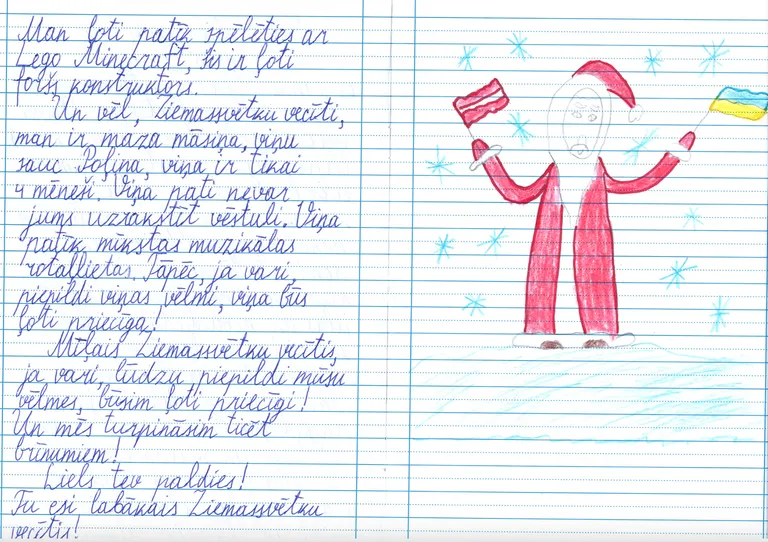 Man ļoti patīk spēlēties ar
Lego Minecraft, šis ir ļoti
foršs konstruktors.
Un vēl, Ziemassvētku vecīti,
man ir maza māsiņa, viņu
sauc Poļina, viņa ir tikai
4 mēneši. Viņa pati nevar
jums uzrakstīt vēstuli. Viņa
patīk mīkstas muzikālas
rotaļlietas. Tāpēc, ja vari,
piepildi viņas vēlmi, viņa būs
ļoti priecīga!
Mīļais Ziemassvētku vecītis,
ja vari, lūdzu, piepildi mūsu
vēlmes, būsim ļoti priecīgi!
Un mēs turpināsim ticēt
brīnumiem!
Liels tev paldies!
Tu esi labākais Ziemassvētku
vecītis!